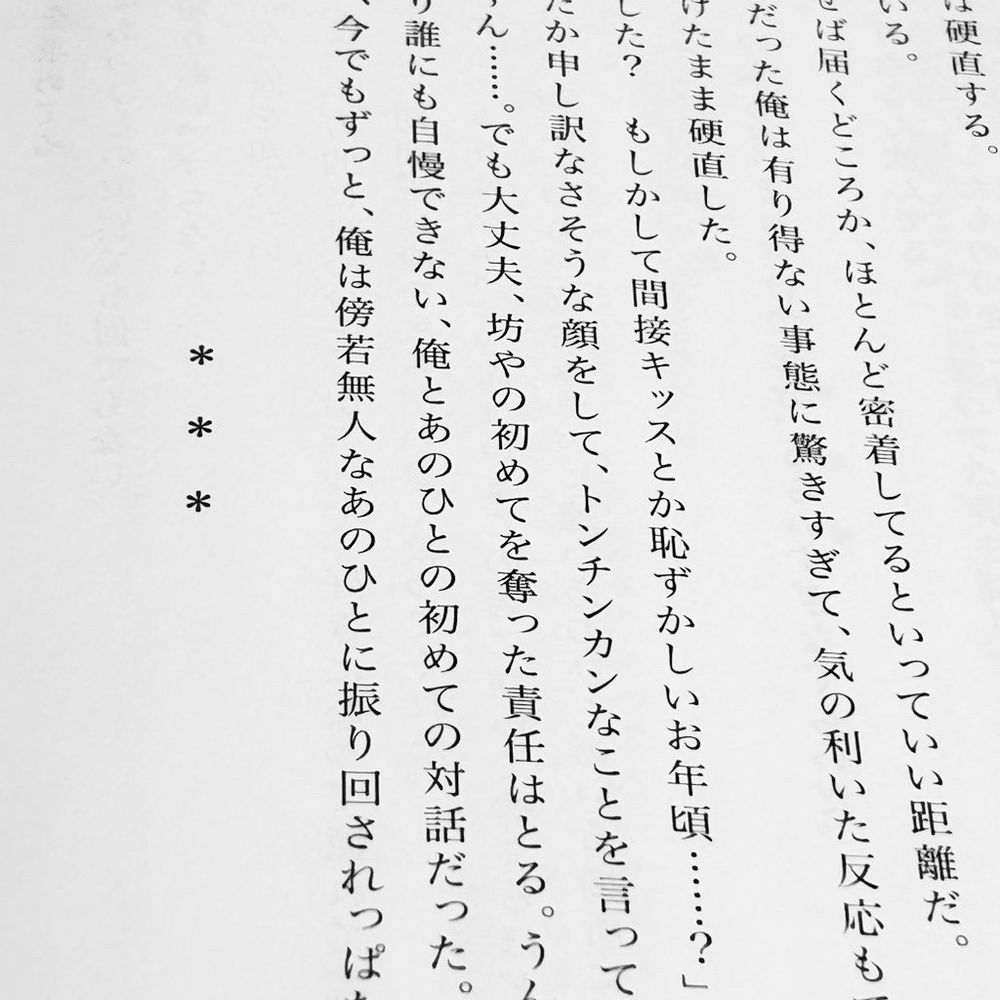 は硬直する。
いる。
せば届くどころか、ほとんど密着してるといっていい距離だ。
だった俺は有り得ない事態に驚きすぎて、気の利いた反応もで
けたまま硬直した。
した？　もしかして間接キッスとか恥ずかしいお年頃……？」
たか申し訳なさそうな顔をして、トンチンカンなことを言って
ん……。でも大丈夫、坊やの初めてを奪った責任はとる。うん
り誰にも自慢できない、俺とあのひとの初めての対話だった。
、今でもずっと、俺は傍若無人なあのひとに振り回されっぱな
＊＊＊